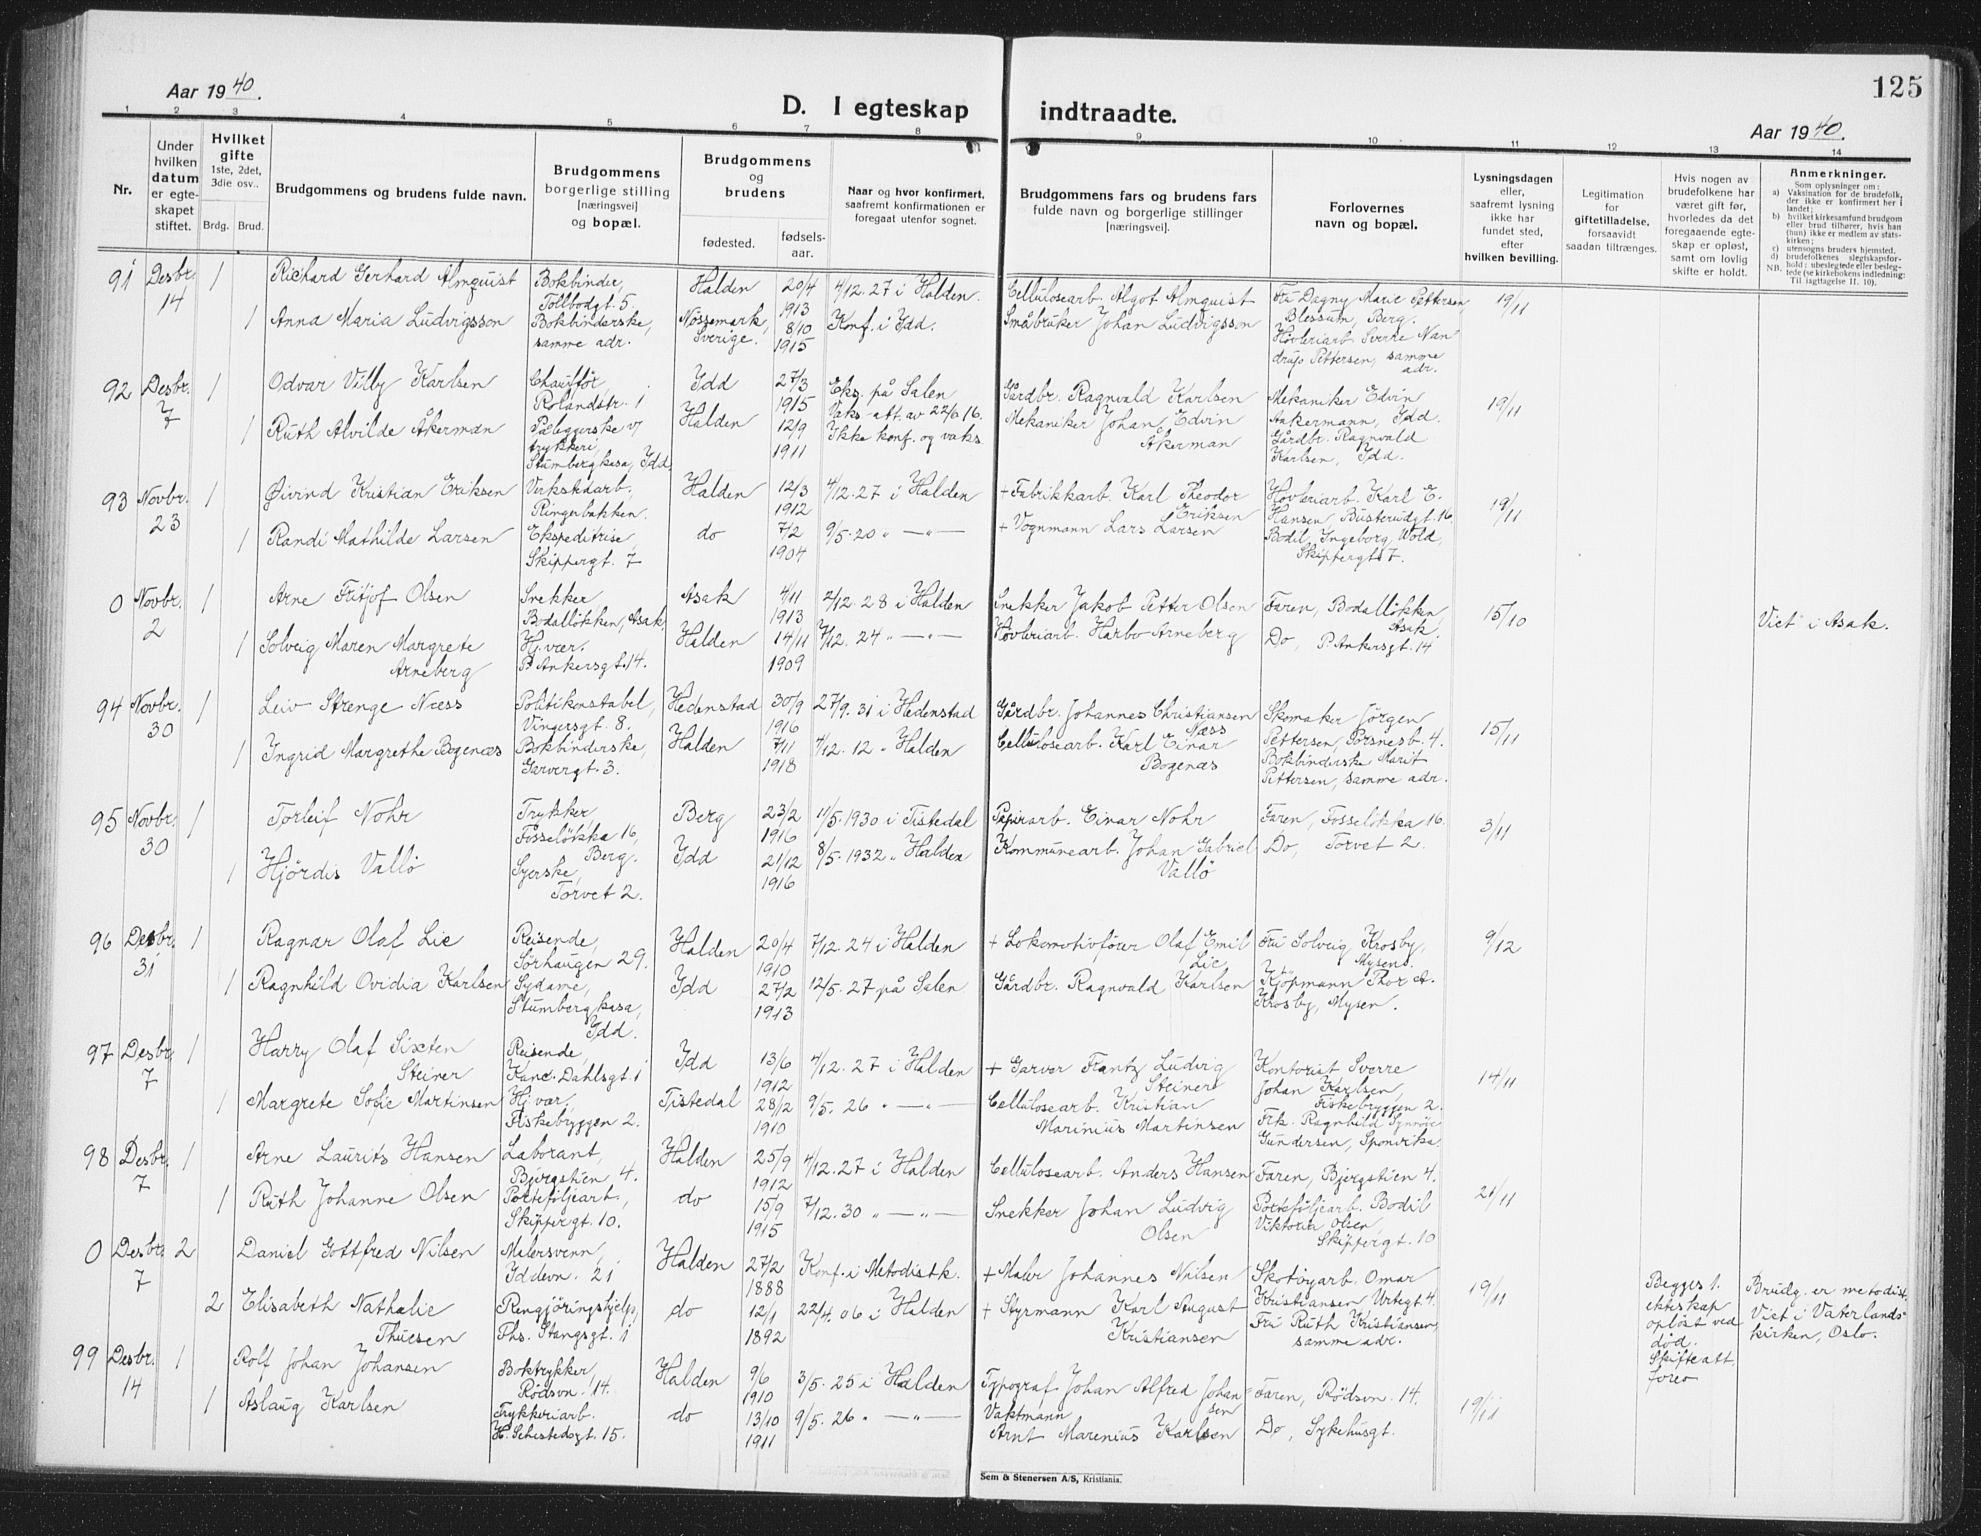 125
Aar 1940.
D. I egteskap indtraadte.
Aar 1940.
1 2 3 4 5 6 7 8 9 10 11 12 13 14
Nr.
Under
hvilken
datum
er egte-
skapet
stiftet.
Hvilket
gifte
1ste, 2det,
3die osv..
Brdg. Brud.
Brudgommens og brudens fulde navn.
Brudgommens
borgerlige stilling
[næringsvei]
og bopæl.
Brudgommens
og
brudens
fødested.
fødsels-
aar.
Naar og hvor konfirmert,
saafremt konfirmationen er
foregaat utenfor sognet.
Brudgommens fars og brudens fars
fulde navn og borgerlige stillinger
[næringsvei].
Forlovernes
navn og bopæl.
Lysningsdagen
eller,
saafremt lysning
ikke har
fundet sted,
efter
hvilken bevilling.
Legitimation
for
giftetilladelse,
forsaavidt
saadan tiltrænges.
Hvis nogen av
brudefolkene har
været gift før,
hvorledes da det
foregaaende egte-
skap er opløst,
samt om lovlig
skifte er holdt.
Anmerkninger.
Som oplysninger om:
a) Vaksination for de brudefolk,
der ikke er konfirmert her i
landet;
b) hvilket kirkesamfund brudgom
eller brud tilhører, hvis han
(hun) ikke er medlem av stats-
kirken;
c) utensogns bruders hjemsted.
d) brudefolkenes slegtskapsfor-
hold: ubeslegtede eller besleg-
NB. tede (se kirkebokens indledning:
Til iagttagelse II. 10).
91 Desbr. 14
1 Richard Gerhard Almquist
Bokbinder,
Tollbodgt. 5
Halden
20/4
1913
4/12.27 i Halden.
Cellulosearb. Algot Almquist
1 Anna Maria Ludvigsson
Bokbinderske,
samme adr.
Nössemark,
Sverige.
8/10
1915
Konf. i Idd.
Småbruker Johan Ludvigsson
Fru Dagny Marie Pettersen,
Blessum, Berg.
Høvleriarb Sverre Nan
drup Pettersen, samme
adr.
19/11
92 Desbr. 7
1 Odvar Villy Karlsen
Chauffør,
Rolandstr. 1
Idd
27/3
1915
Eks. på Salen
Vaks-att. av 22/6.16.
Gårdbr. Ragnvald Karlsen
1 Ruth Alvilde Åkerman
Påleggerske v/
trykkeri,
Stumbergkasa, Idd.
Halden
12/9
1911
Ikke konf. og vaks.
Mekaniker Johan Edvin
Åkerman
Mekaniker Edvin
Aakermann, Idd.
Gårdbr. Ragnvald
Karlsen, Idd.
19/11
93 Novbr. 23
1 Øivind Kristian Eriksen
Verkstdarb.,
Ringerbakken.
Halden
12/3
1912
4/12.27 i Halden
+ Fabrikkarb. Karl Theodor
Eriksen
1 Randi Mathilde Larsen
Ekspeditrise,
Skippergt. 7
do
7/2
1904
9/5.20 " — " —
+ Vognmann Lars Larsen
Høvleriarb. Karl E.
Hansen, Busterudgt. 16
Bodil Ingeborg Wold,
Skippergt 7.
19/11
0 Novbr. 2
1 Arne Fritjof Olsen
Snekker
Bodalløkken, Asak
Asak
4/11
1913
2/12.28 i Halden
Snekker Jakob Petter Olsen
Faren, Bodalløkken,
Asak.
1 Solveig Maren Margrete
Arneberg
Hj.vær.
P. Ankersgt. 14.
Halden
14/11
1909
7/12.24 " — " —
Høvleriarb. Harbo Arneberg
Do, P. Ankersgt. 14
15/10
Viet i Asak.
94 Novbr. 30
1 Leiv Strenge Næss
Politikonstabel,
Vingersgt. 8.
Hedenstad
30/9
1916
27/9.31 i Hedenstad
Gårdbr. Johannes Christiansen
Næss
1 Ingrid Margrethe Bogenæs
Bokbinderske,
Garvergt. 3.
Halden
7/11
1918
4/12.12 " Halden
Cellulosearb. Karl Einar
Bogenæs
Skomaker Jörgen
Pettersen, Porsnesb. 4.
Bokbinderske Marit
Pettersen, samme adr.
15/11
95 Novbr. 30
1 Torleif Nohr
Trykker,
Fosseløkka 16,
Berg.
Berg
23/2
1916
11/5.1930 i Tistedal
Papirarb. Einar Nohr
Faren, Fosseløkka 16.
1 Hjørdis Vallø
Syerske,
Torvet 2.
Idd
21/12
1916
8/5.1932 " Halden
Kommunearb. Johan Gabriel
Vallø
Do, Torvet 2.
3/11
96 Desbr. 31
1 Ragnar Olaf Lie
Reisende,
Sørhaugen 29.
Halden
20/4
1910
7/12.24 i Halden
+ Lokomotivfører Olaf Emil
Lie
1 Ragnhild Ovidia Karlsen
Sydame,
Stumbergkasa,
Idd.
Idd
27/2
1913
12/5.27 på Salen
Gårdbr. Ragnvald Karlsen
Fru Solveig Krosby,
Mysen.
Kjöpmann Thor A.
Krosby, Mysen.
9/12
97 Desbr. 7
1 Harry Olaf Sixten
Steiner
Reisende,
Kanc. Dahlsgt. 1
Idd
13/6
1912
4/12.27 i Halden
+ Garver Frantz Ludvig
Steiner
1 Margrete Sofie Martinsen
Hj.vær.
Fiskebryggen 2.
Tistedal
28/2
1910
9/5.26 " — " —
Cellulosearb. Kristian
Marinius Martinsen
Kontorist Sverre
Johan Karlsen,
Fiskebryggen 2.
Frk. Ragnhild Synnöve
Gundersen, Sponvika.
14/11
98 Desbr. 7
1 Arne Laurits Hansen
Laborant,
Bjergstien 4.
Halden
25/9
1912
4/12.27 i Halden
Cellulosearb. Anders Hansen
Faren, Bjergstien 4.
1 Ruth Johanne Olsen
Porteføljearb.,
Skippergt. 10.
do
15/9
1915
7/12.30 " — " —
Snekker Johan Ludvig
Olsen
Porteføljearb. Bodil
Viktoria Olsen,
Skippergt. 10
21/11
0 Desbr. 7
2 Daniel Gottfred Nilsen
Malersvenn,
Iddevn. 21
Halden
27/2
1888
Konf. i Metodistk.
+ Maler Johannes Nilsen
2 Elisabeth Nathalie
Thuesen
Rengjöringshjelp,
Phs. Stangsgt. 1
do
12/1
1892
22/4.06 i Halden
+ Styrmann Karl August
Kristiansen
Skotøyarb. Omar
Kristiansen Urtegt. 4.
Fru Ruth Kristiansen,
samme adr.
19/11
Begges 1.
ekteskap
opløst ved
død.
Skifteatt.
forev
Brudg. er metodist.
Viet i Vaterlands
kirken, Oslo.
99 Desbr. 14
1 Rolf Johan Johansen
Boktrykker,
Rødsvn. 14.
Halden
9/6
1910
3/5.25 i Halden
Typograf Johan Alfred Johan-
sen
Faren, Rødsvn. 14.
1 Aslaug Karlsen
Trykkeriarb.
H. Schestedsgt. 15.
do
13/10
1911
9/5.26 " — " —
Vaktmann
Arnt Marenius Karlsen
Do, Sykehusgt.
19/11
Sem & Stenersen A/S, Kristiania.